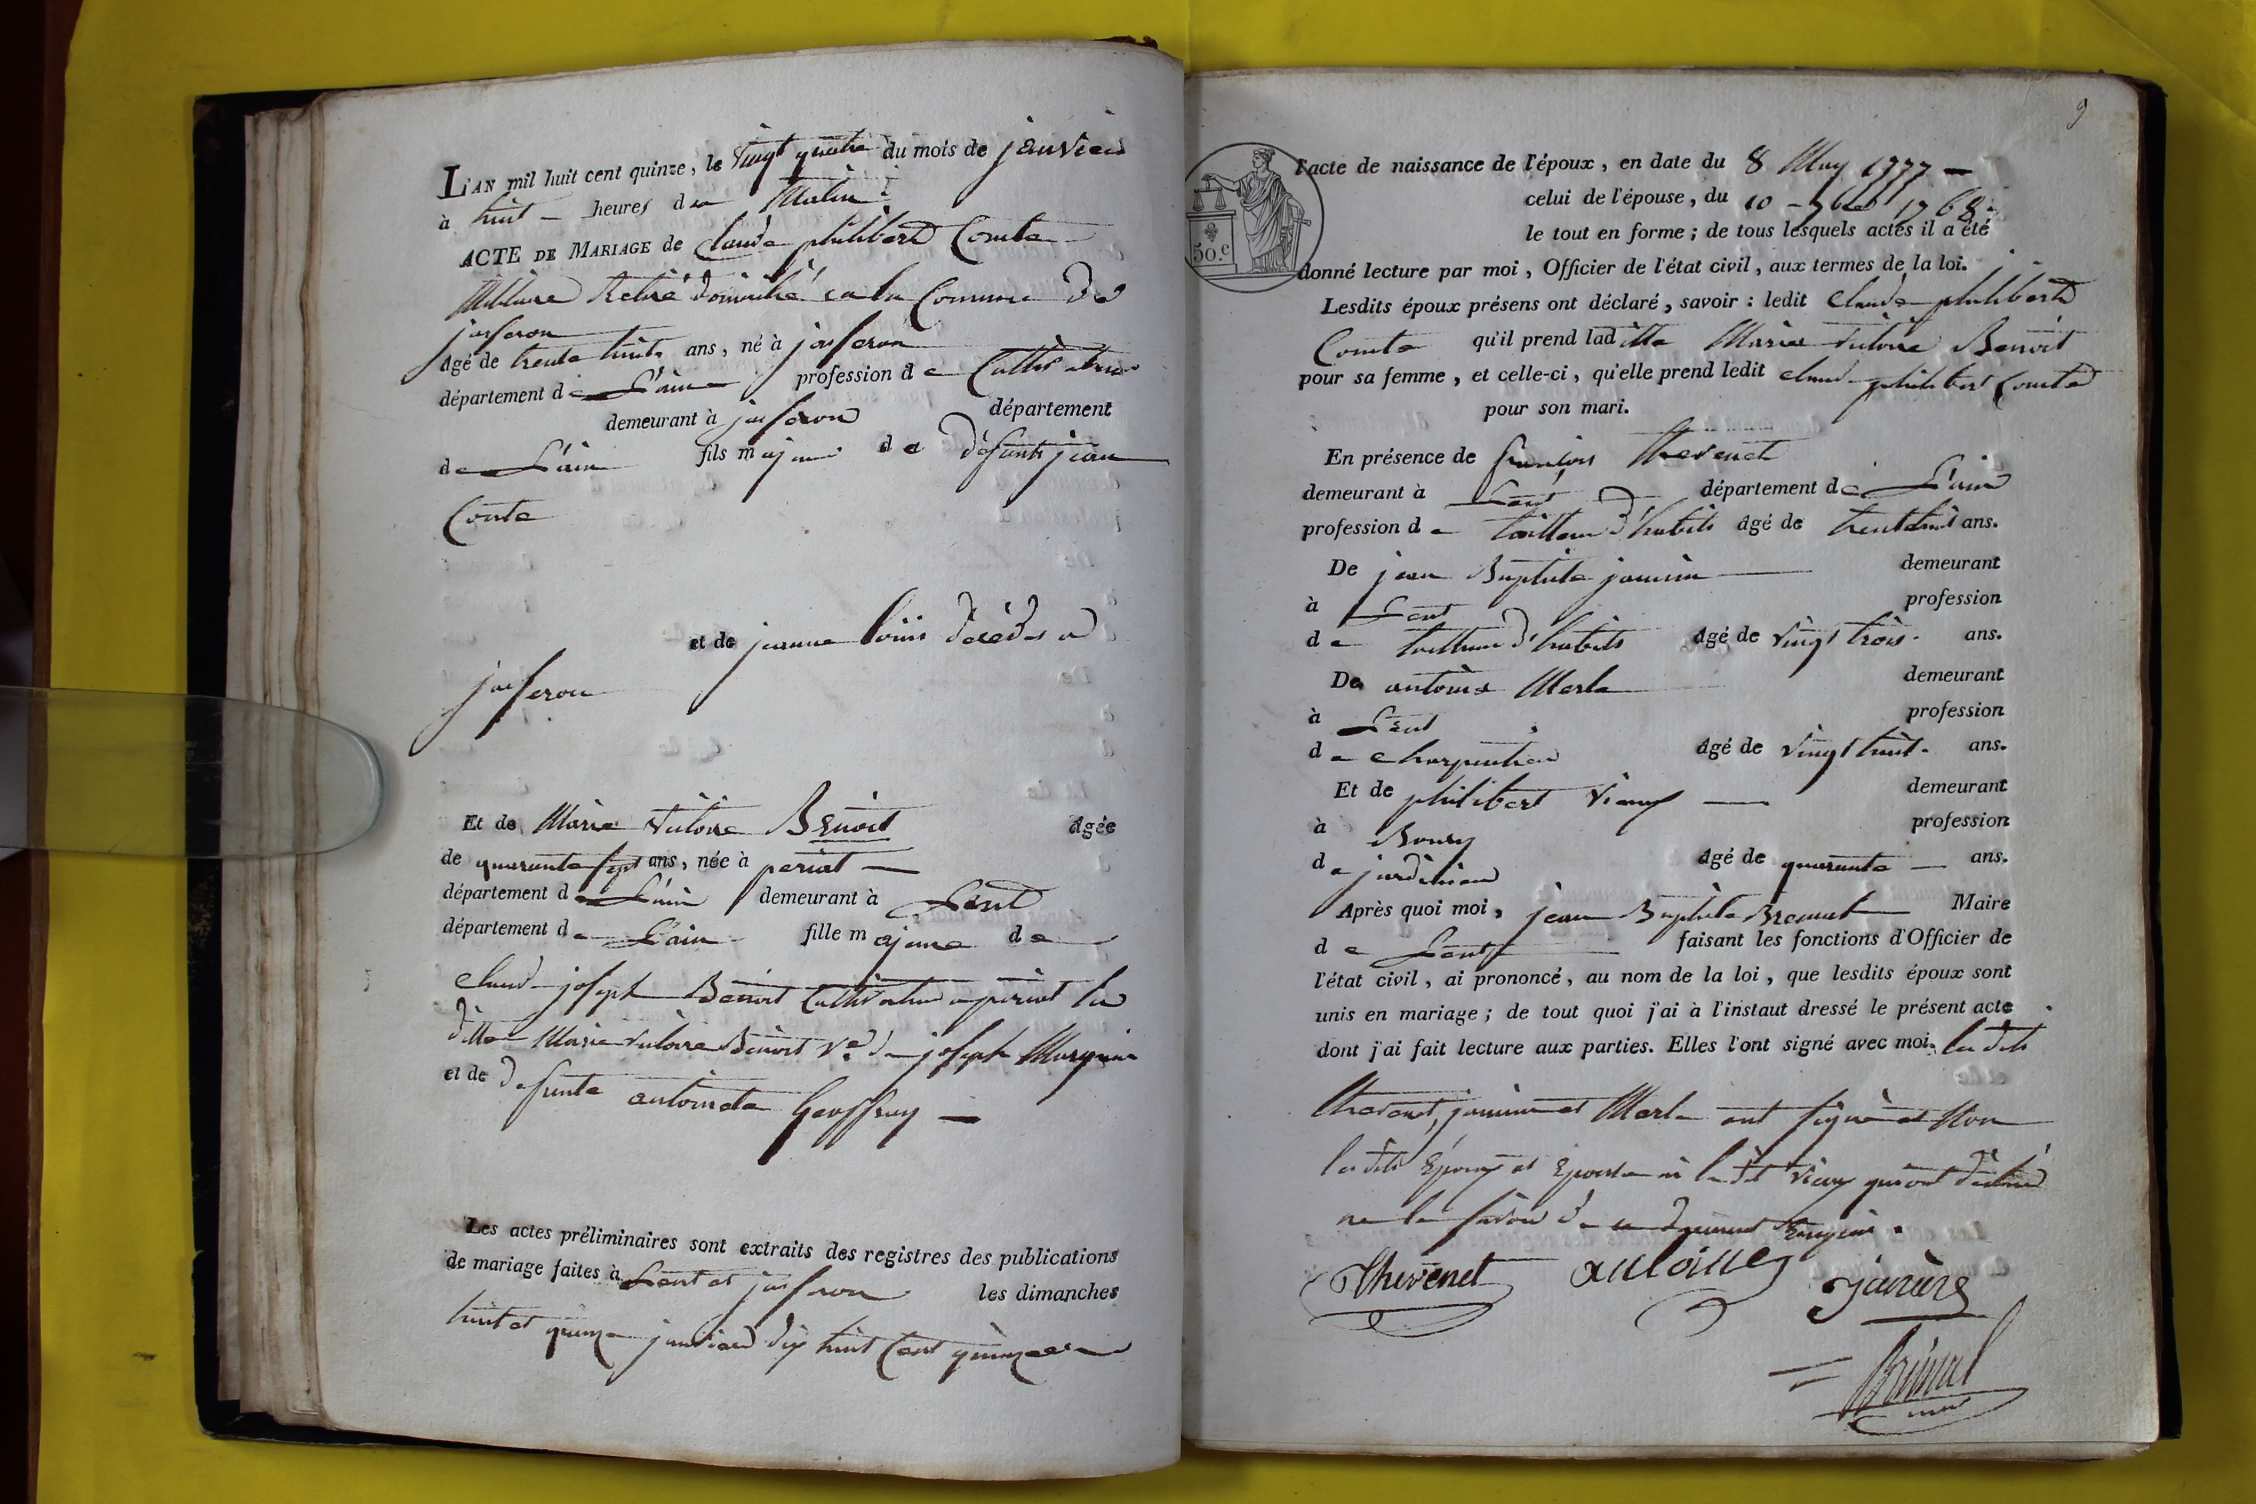 L'AN mil huit cent quinze, le vingt quatre du mois de janvier
à huit heures du Matin
ACTE DE MARIAGE de Claude philibert Comte
Militaire Retiré domicilié en la Commune de
jasseron
âgé de trente huit ans, né à jasseron
département de L'ain profession de Cultivateur
demeurant à jasseron département
de L'ain fils majeur de défunt jean
Comte
et de jeanne décédés a
jasseron
Et de Marie victoire Benoit âgée
de quarante sept ans, née à periat
département de L'ain demeurant à Lent
département de L'ain fille majeure de
claude joseph Benoit Cultivateur a periat la
ditte Marie victoire Benoit Ve de joseph
et de defunte antoinete Geoffray
Les actes préliminaires sont extraits des registres des publications
de mariage faites à Lent et jasseron les dimanches
huit et quinze janvier dix huit Cent quinze
9
l'acte de naissance de l'époux, en date du 8 May 1777
celui de l'épouse, du 10 - 7bre 1768.
le tout en forme; de tous lesquels actes il a été
50.c
donné lecture par moi, Officier de l'état civil, aux termes de la loi.
Lesdits époux présens ont déclaré, savoir: ledit Claude philibert
Comte qu'il prend laditte Marie victoire Benoit
pour sa femme, et celle-ci, qu'elle prend ledit claude philibert Comte
pour son mari.
En présence de françois thevenet
demeurant à Lent département de L'ain
profession de tailleur d'habits âgé de trente huit ans.
De jean Baptiste janin demeurant
à Lent profession
de tailleur d'habits âgé de vingt trois. ans.
De antoine Merle demeurant
à Lent profession
de charpentier âgé de vingt huit. ans.
Et de philibert vieux demeurant
à Bourg profession
de jardinier âgé de quarante ans.
Après quoi moi, jean Baptiste Maire
de Lent faisant les fonctions d'Officier de
l'état civil, ai prononcé, au nom de la loi, que lesdits époux sont
unis en mariage; de tout quoi j'ai à l'instaut dressé le présent acte
dont j'ai fait lecture aux parties. Elles l'ont signé avec moi. les dits
thevenet, janin et Merle ont signé et Non
les dits Epoux et Epouse ni le dit vieux qui ont déclaré
ne le savoir de ce Enquis.
Thevenet